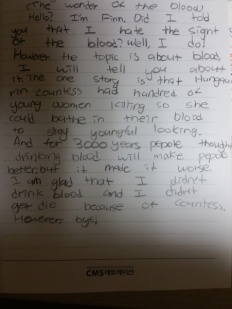 (The wonder of the blood)
Hello? I'm Finn. Did I told
you that I hate the sight
of the blood? Well, I do!
However the topic is about blood
I will tell you about
it. The one story is that Hungarian
countess had hundreds of
young women killing so she
could bathe in their blood
to stay youngful looking.
And for 3000 years pepole thought
drinking blood will make pepole
better but it made it worse.
I am glad that I didn't
drink blood and I didn't
get die because of countess.
However bye!
CMS에듀케이션